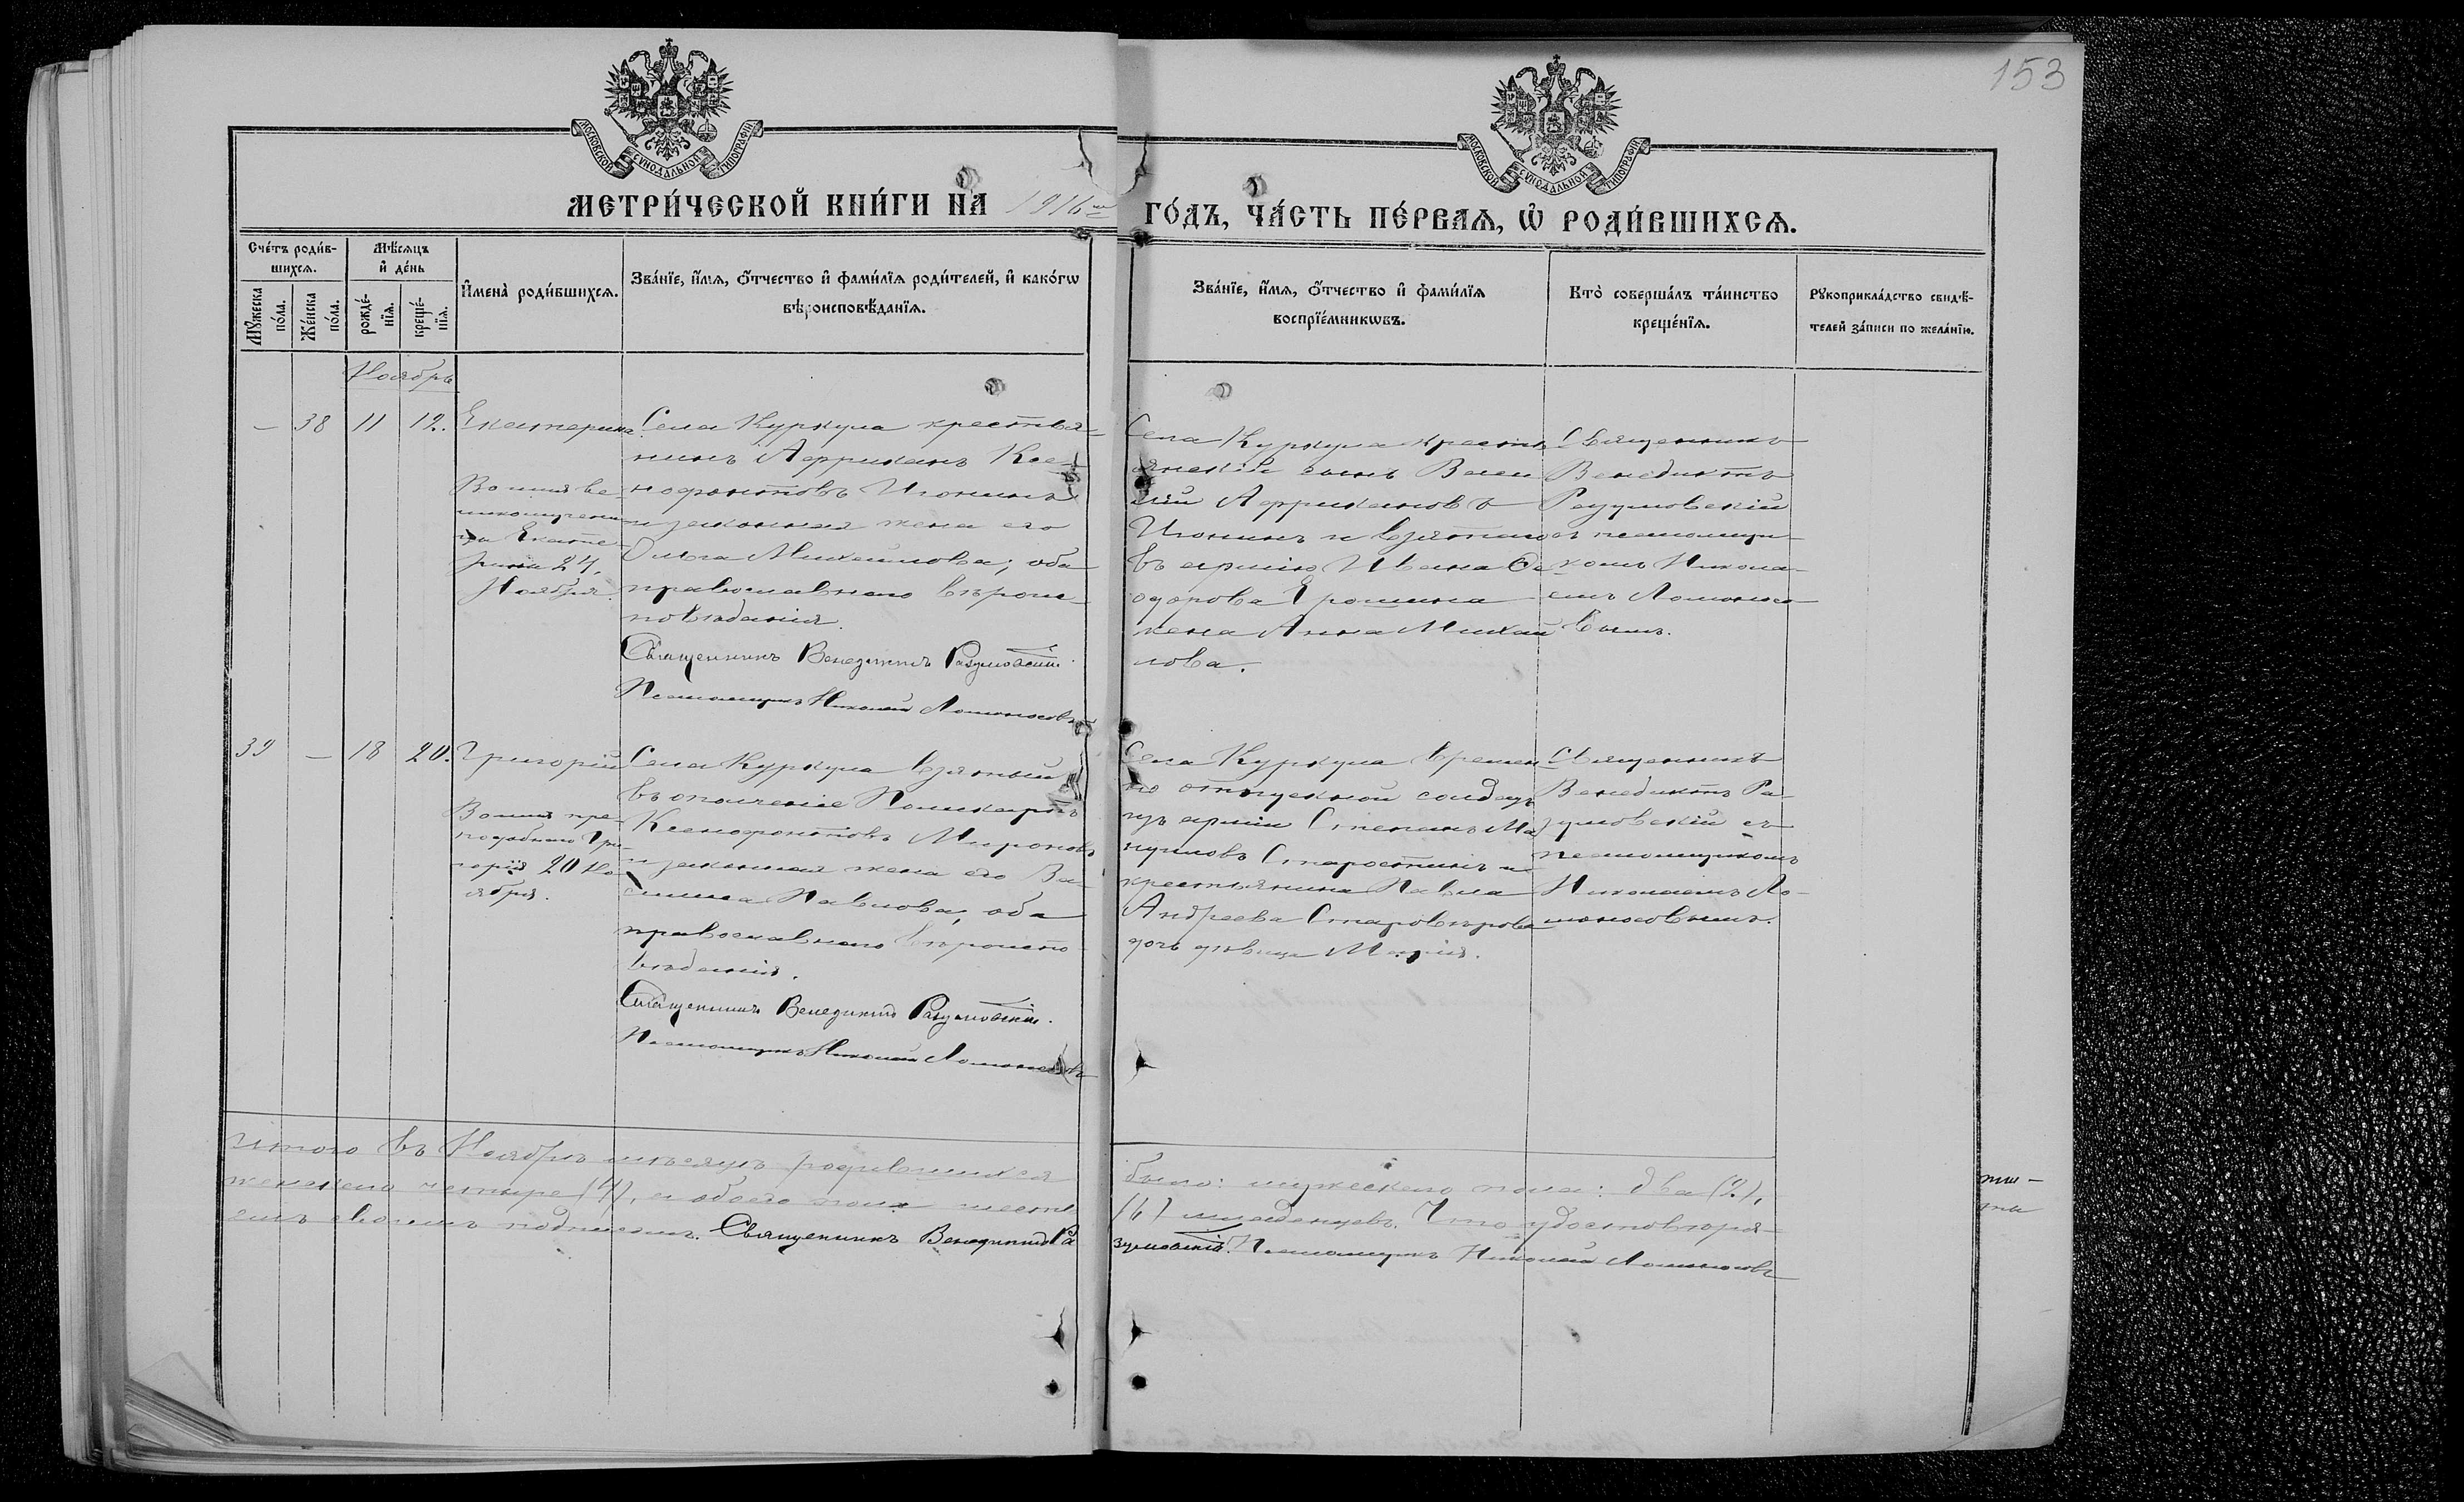 153
МОСКОВСКОЙ СѴНОДАЛЬНОЙ ТИПОГРАФІИ
МОСКОВСКОЙ СѴНОДАЛЬНОЙ ТИПОГРАФІИ
МЕТРИ́ЧЕСКОЙ КНИ́ГИ НА 1916 ГО́ДЪ, ЧА́СТЬ ПЕ́РВАЯ, Ѡ РОДИ́ВШИХСЯ.
Сче́тъ роди́в-
шихся.
Мꙋ́жеска
по́ла.
Же́нска
по́ла.
Мѣ́сяцъ
и҆ де́нь
рожде́-
нїя.
креще́-
нїя.
И҆мена̀ роди́вшихся.
Зва́нїе, и҆́мя, ѻ҆́тчество и҆ фами́лїя роди́телей, и҆ како́гѡ
вѣроисповѣ́данїя.
Зва́нїе, и҆́мя, ѻ҆́тчество и҆ фами́лїя
воспрїе́мникѡвъ.
Кто̀ соверша́лъ та́инство
креще́нїя.
Рꙋкоприкла́дство свидѣ́-
телей за́писи по жела́нїю.
Ноябрь
— 38 11 12. Екатерина
Во имя ве-
ликомучени-
цы Екате-
рины 24,
Ноября.
Села Куркула крестья-
нинъ Африканъ Ксе-
нофонтовъ Игонинъ
и законная жена его
Ольга Михайлова; оба
православнаго вѣроис-
повѣданія.
Священникъ Венедиктъ Разумовскій.
Псаломщикъ Николай Ломоносовъ
Села Куркула кресть-
янскій сынъ Васи
лій Африкановъ
Игонинъ и взятаго
въ армію Ивана Ѳе
одорова Ерошина
жена Анна Михай
лова.
Священникъ
Венедиктъ
Разумовскій
съ псаломщи-
комъ Никола-
емъ Ломоносо-
вымъ.
39 — 18 20. Григорій
Во имя пре-
подобнаго Гри-
горія 20 Но-
ября.
Села Куркула взятый
въ ополченіе Поликарпъ
Ксенофонтовъ Мироновъ
и законная жена его Ва-
силиса Павлова, оба
православнаго вѣроиспо-
вѣданія.
Священникъ Венедиктъ Разумовскій.
Псаломщикъ Николай Ломоносовъ
Села Куркула времен
но отпускной солдатъ
изъ арміи Степанъ Ма
нуиловъ Старостинъ и
крестьянина Павла
Андреева Старовѣрова
дочь дѣвица Марія.
Священникъ
Венедиктъ Ра-
зумовскій съ
псаломщикомъ
Николаемъ Ло-
моносовымъ.
Итого въ Ноябрѣ мѣсяцѣ родившихся было: мужескаго пола: два (2),
женскаго четыре (4), а обоего пола шесть (6) младенцевъ. Что удостовѣря-
емъ своимъ подписомъ. Священникъ Венедиктъ Ра
зумовскій. Псаломщикъ Николай Ломоносовъ